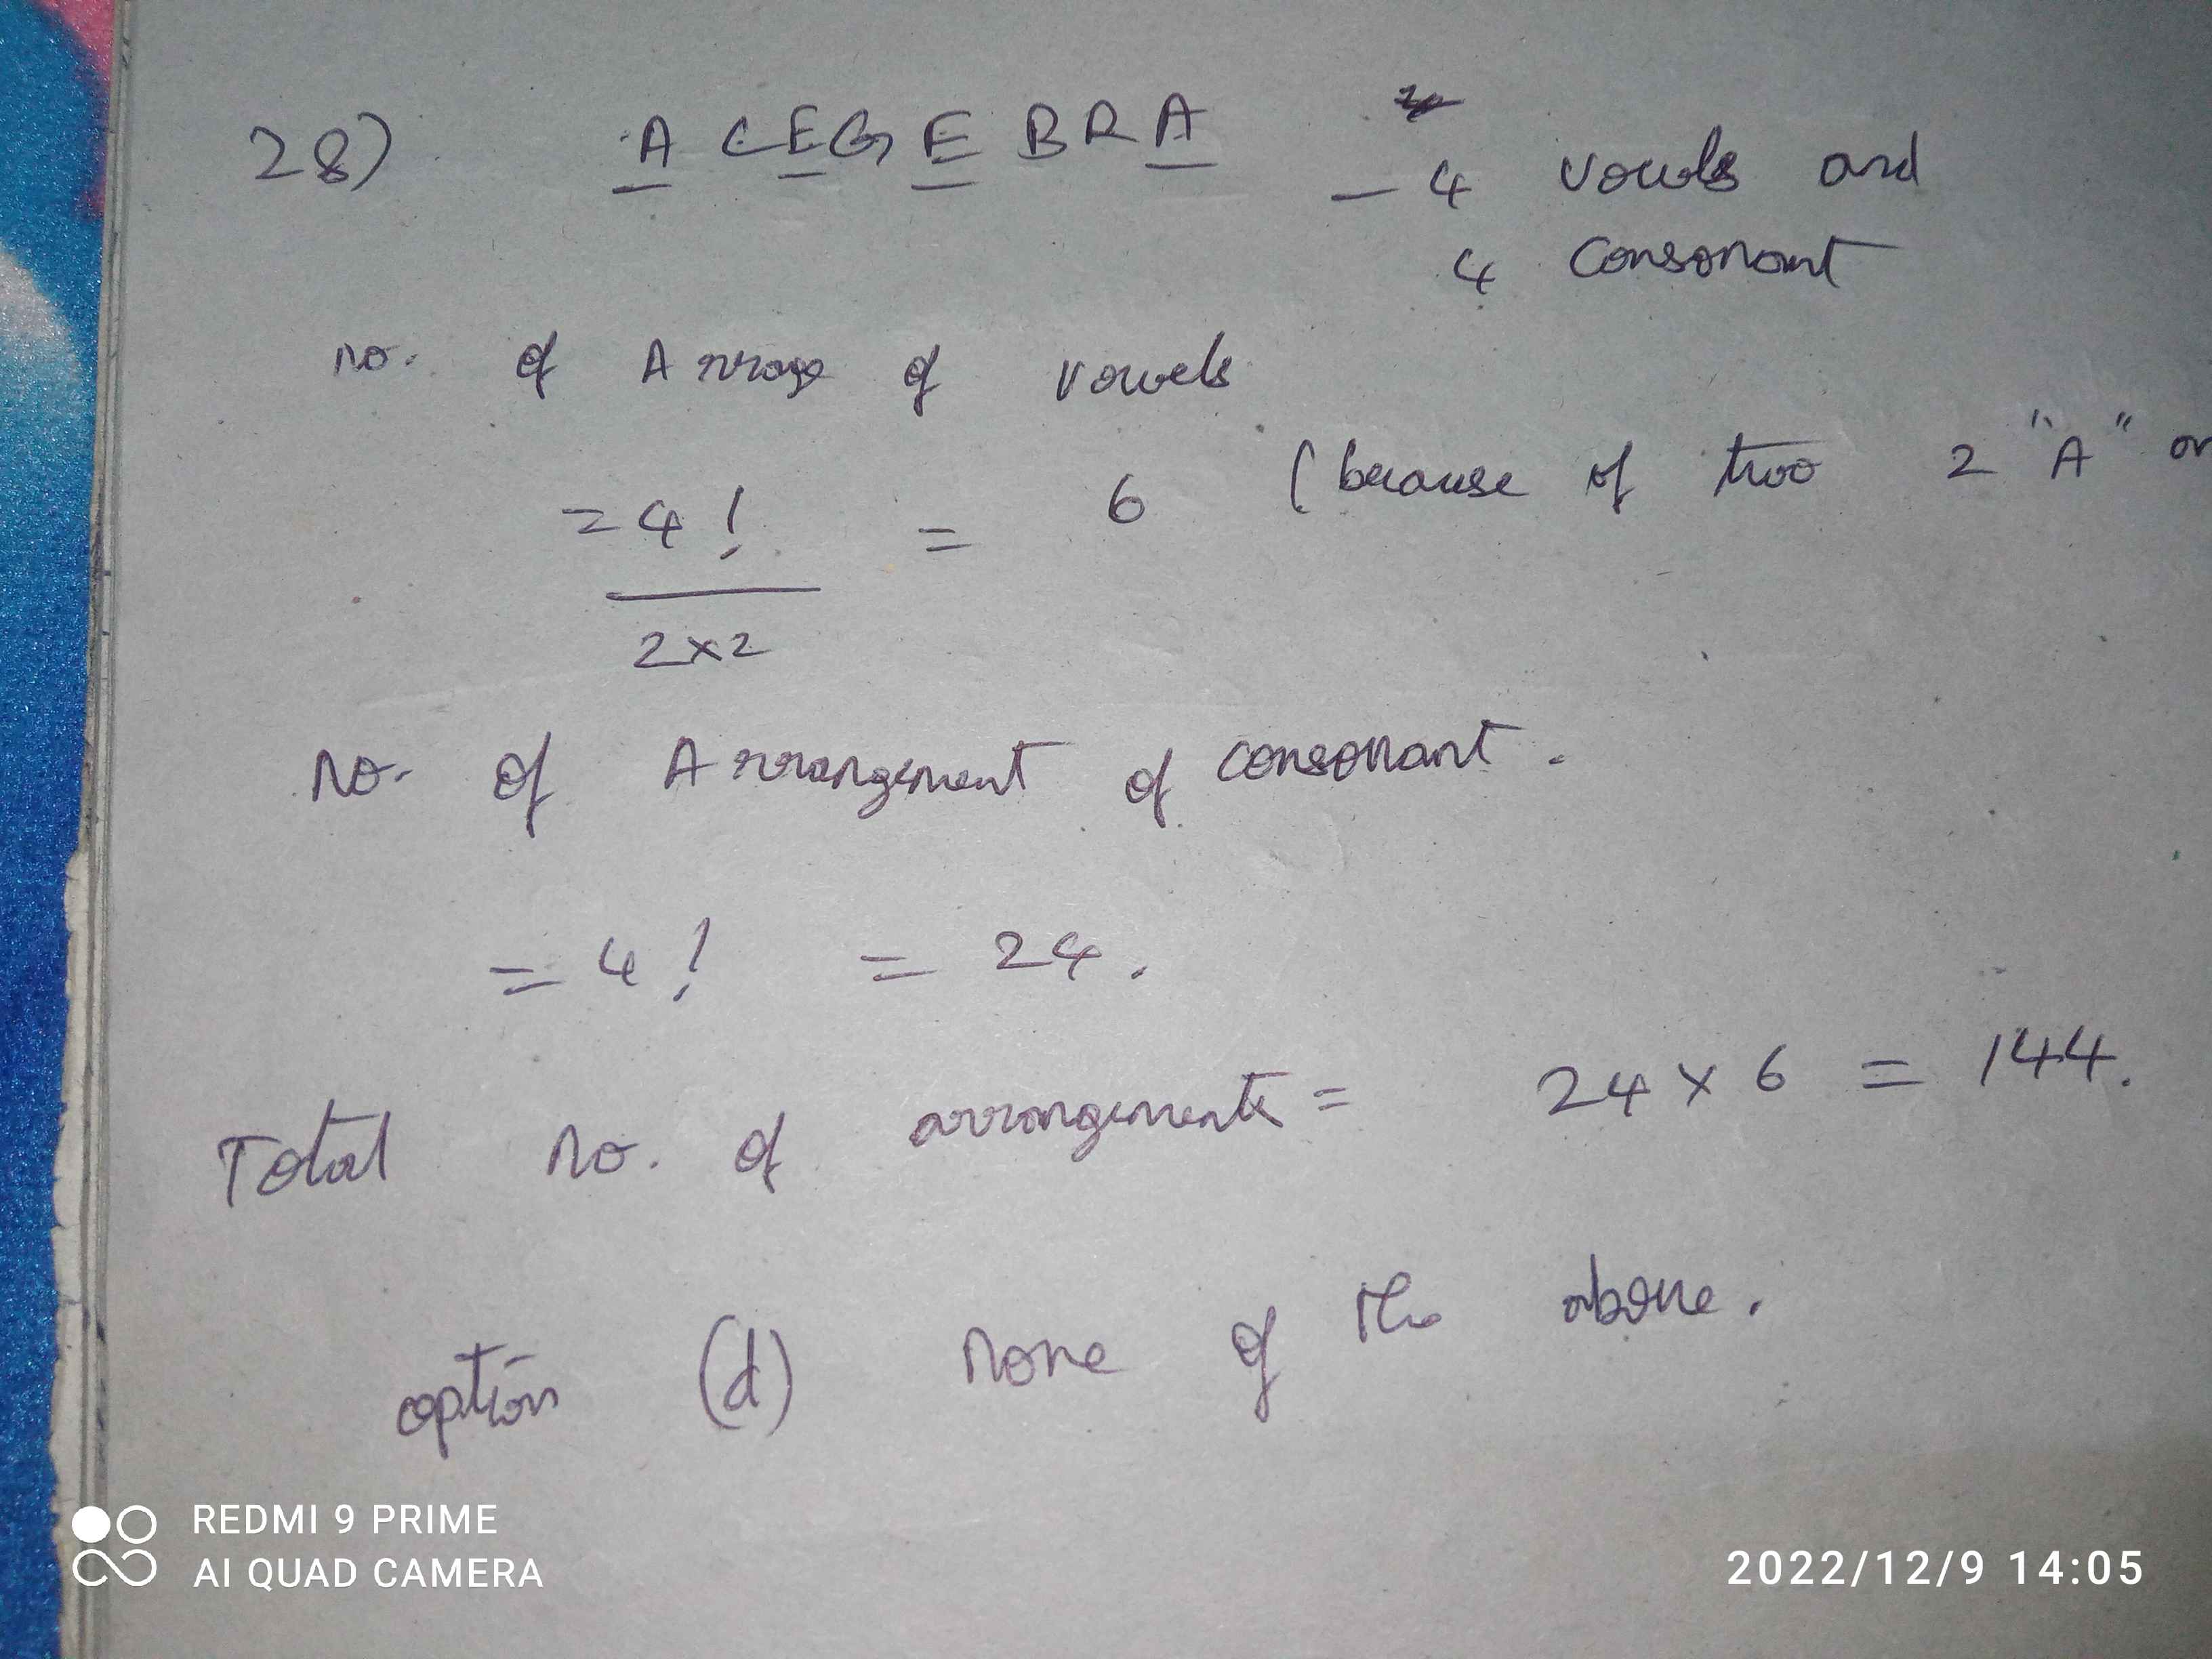 28) A C E G E B R A - 4 vowels and
4 consonant
no. of Arrange of vowels
= 4! = 6 (because of two 2 "A" or
2×2
no. of Arrangement of consonant.
= 4! = 24.
Total no. of arrangements = 24 × 6 = 144.
option (d) none of the above.
REDMI 9 PRIME
AI QUAD CAMERA
2022/12/9 14:05